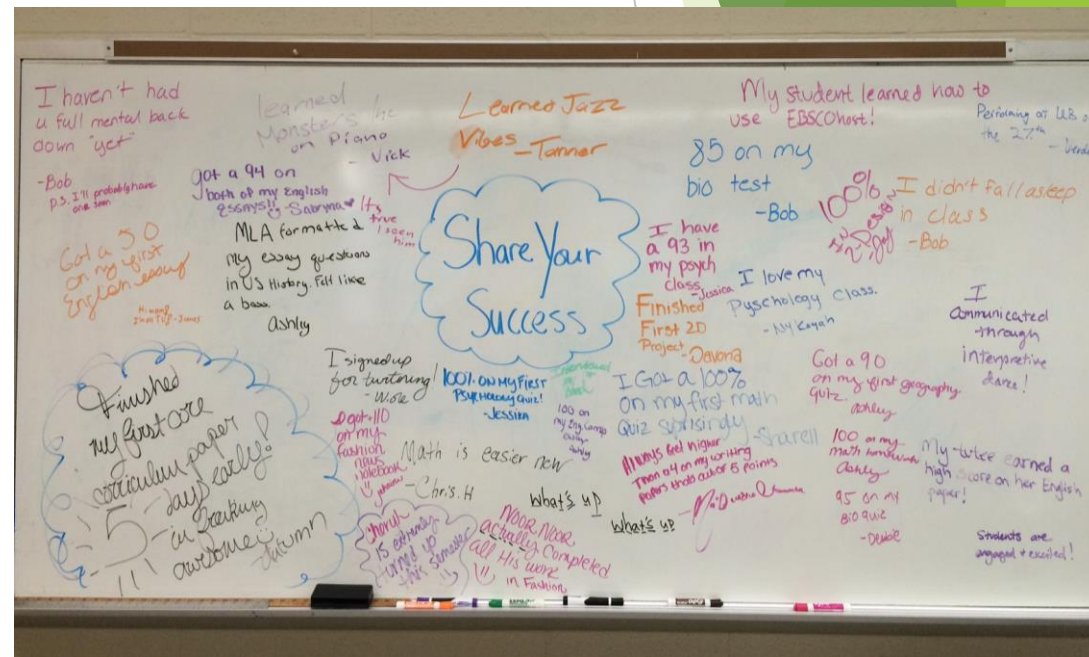 I haven't had
a full mental back
down "yet"
-Bob
P.S. I'll probably have
one soon
learned
Monster's Inc
on Piano
- Vick
Learned Jazz
Vibes -Tanner
My student learned how to
use EBSCOhost!
Performing at
the 27th
got a 94 on
both of my English
essays!! -Sabryna
It's
true
I seen
him
85 on my
bio test
-Bob
100%
I didn't fall asleep
in class
-Bob
Got a 50
on my first
English essay
MLA formatted
my essay questions
in US History. Felt like
a boss
Ashly
Share Your
Success
I have
a 93 in
my psych
class
-Jessica
I love my
Pyschology class.
Finished
First 2D
Project -Davona
I
communicated
through
interpretive
dance!
Finished
my first core
curriculum paper
-5- days early!
in freaking
awesome
Autumn
I signed up
for turtoring!
100% on My First
Psychology Quiz!
-Jessika
100 on
my Eng Comp
Ashly
I Got a 100%
on my first math
Quiz suprisingly -Sharell
Got a 90
on my first geography
quiz.
Ashley
I got a 110
on my
fashion
news
notebook
Math is easier now
-Chris.H
What's up
What's up
Always get higher
Than on my writing
papers thats out of 5 points
100 on my
math homework
Ashley
95 on my
BIO quiz
My tutee earned a
high score on her English
paper!
Students are
engaged + excited!
is extremely
turned up
this semester
Noor Noor
actually completed
all His work
in Fashion
EXPO